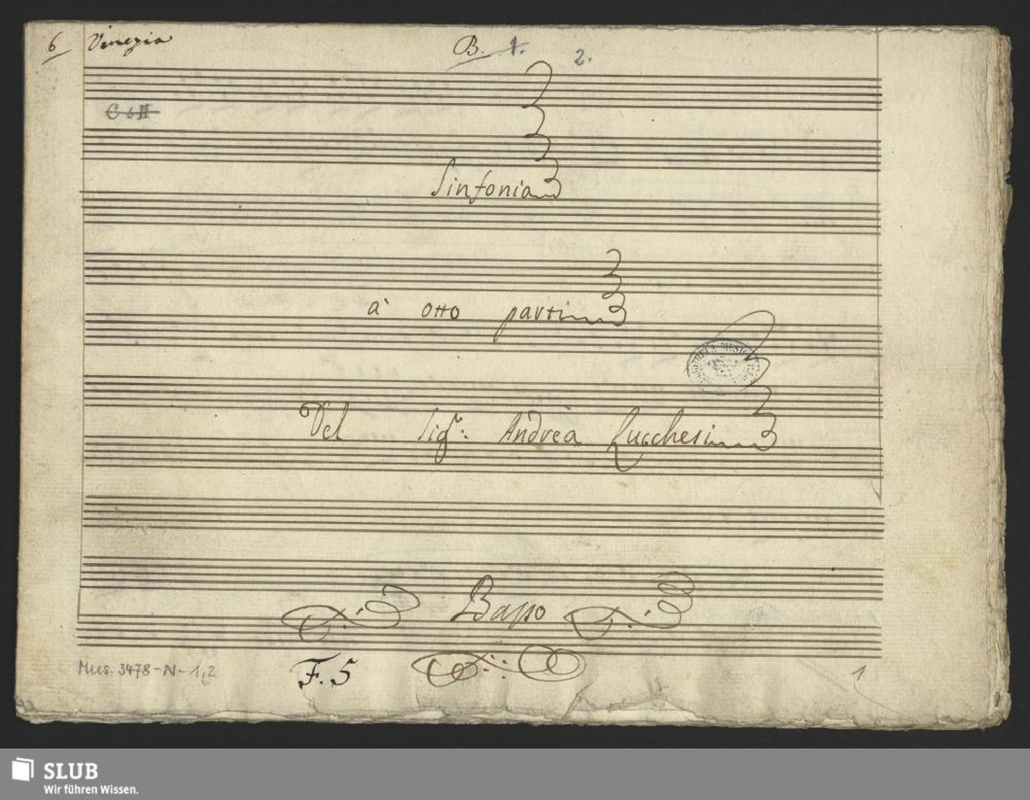 6 Venezia
B. 1. 2.
C 6 H
Sinfonia
à otto parti
Del Sigr: Andrèa Lucchesi
Basso
Mus. 3478-N-1,2
F. 5
1
SLUB
Wir führen Wissen.